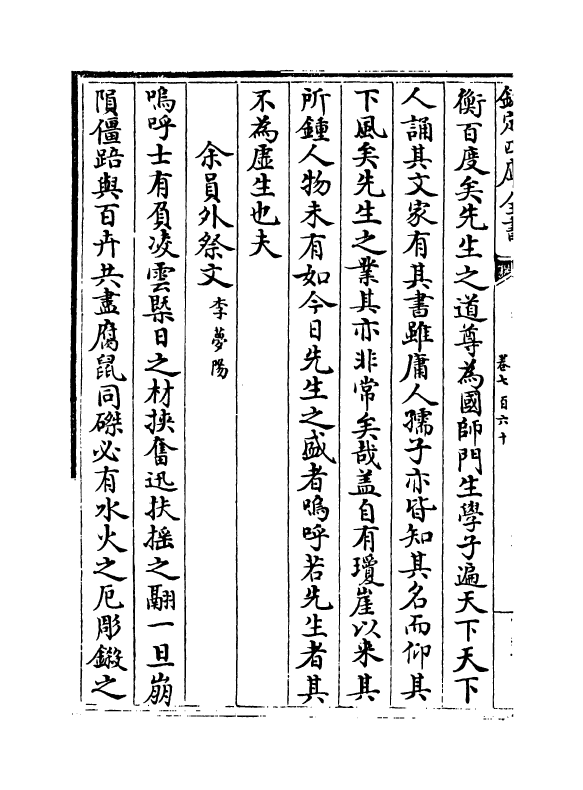 欽定四庫全書
卷七百六十
衡百度矣先生之道尊為國師門生學子遍天下天下
人誦其文家有其書雖庸人孺子亦皆知其名而仰其
下風矣先生之業其亦非常矣哉盖自有瓊崖以来其
所鍾人物未有如今日先生之盛者嗚呼若先生者其
不為虚生也夫
余員外祭文李夢陽
嗚呼士有負凌雲槩日之材挾奮迅扶摇之翮一旦崩
隕僵踣與百卉共盡腐鼠同磔必有水火之厄彫鎩之